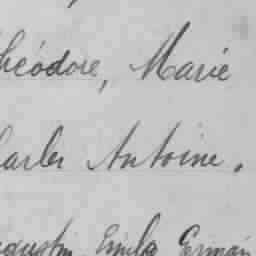 héodore, Marie
harles Antoine.
ugustin Emile Germain